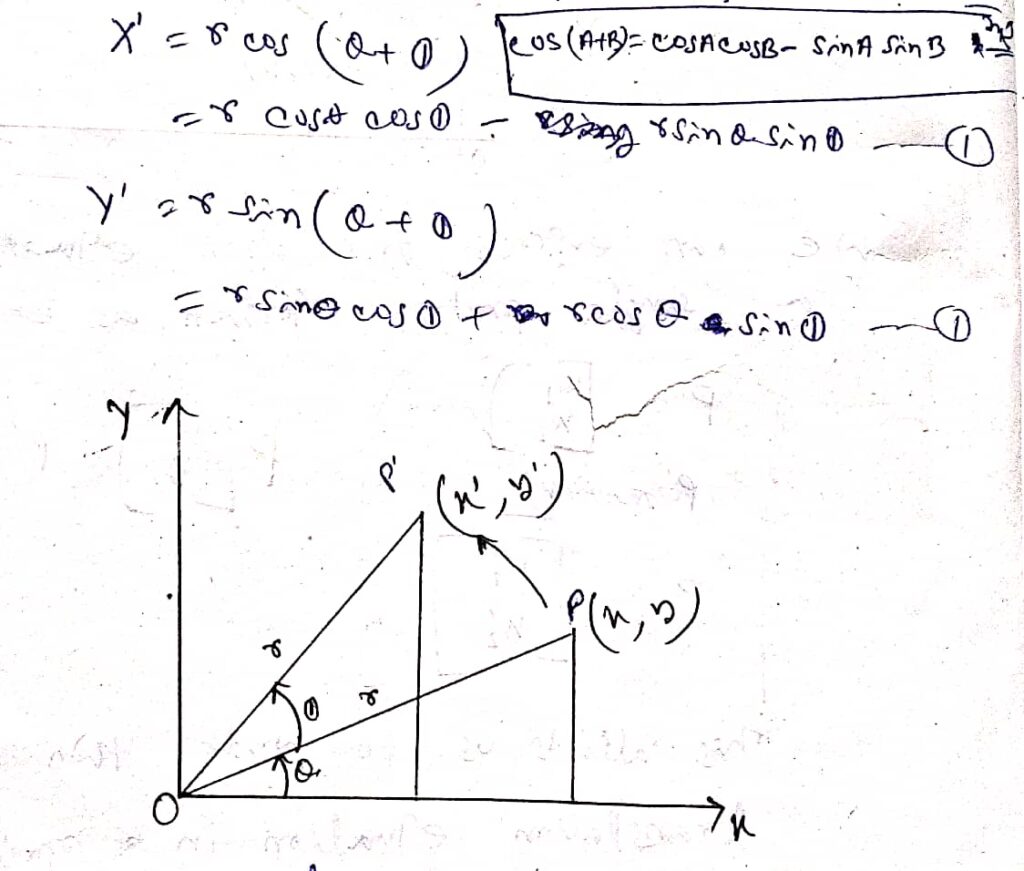 X' = r cos (θ + Φ)
cos(A+B) = cosA cosB - sinA sinB
= r cosθ cosΦ - r sinθ sinΦ — ①
Y' = r sin (θ + Φ)
= r sinθ cosΦ + r cosθ sinΦ — ①
Y
P' (x', y')
P(x, y)
r
r
Φ
θ
O
x